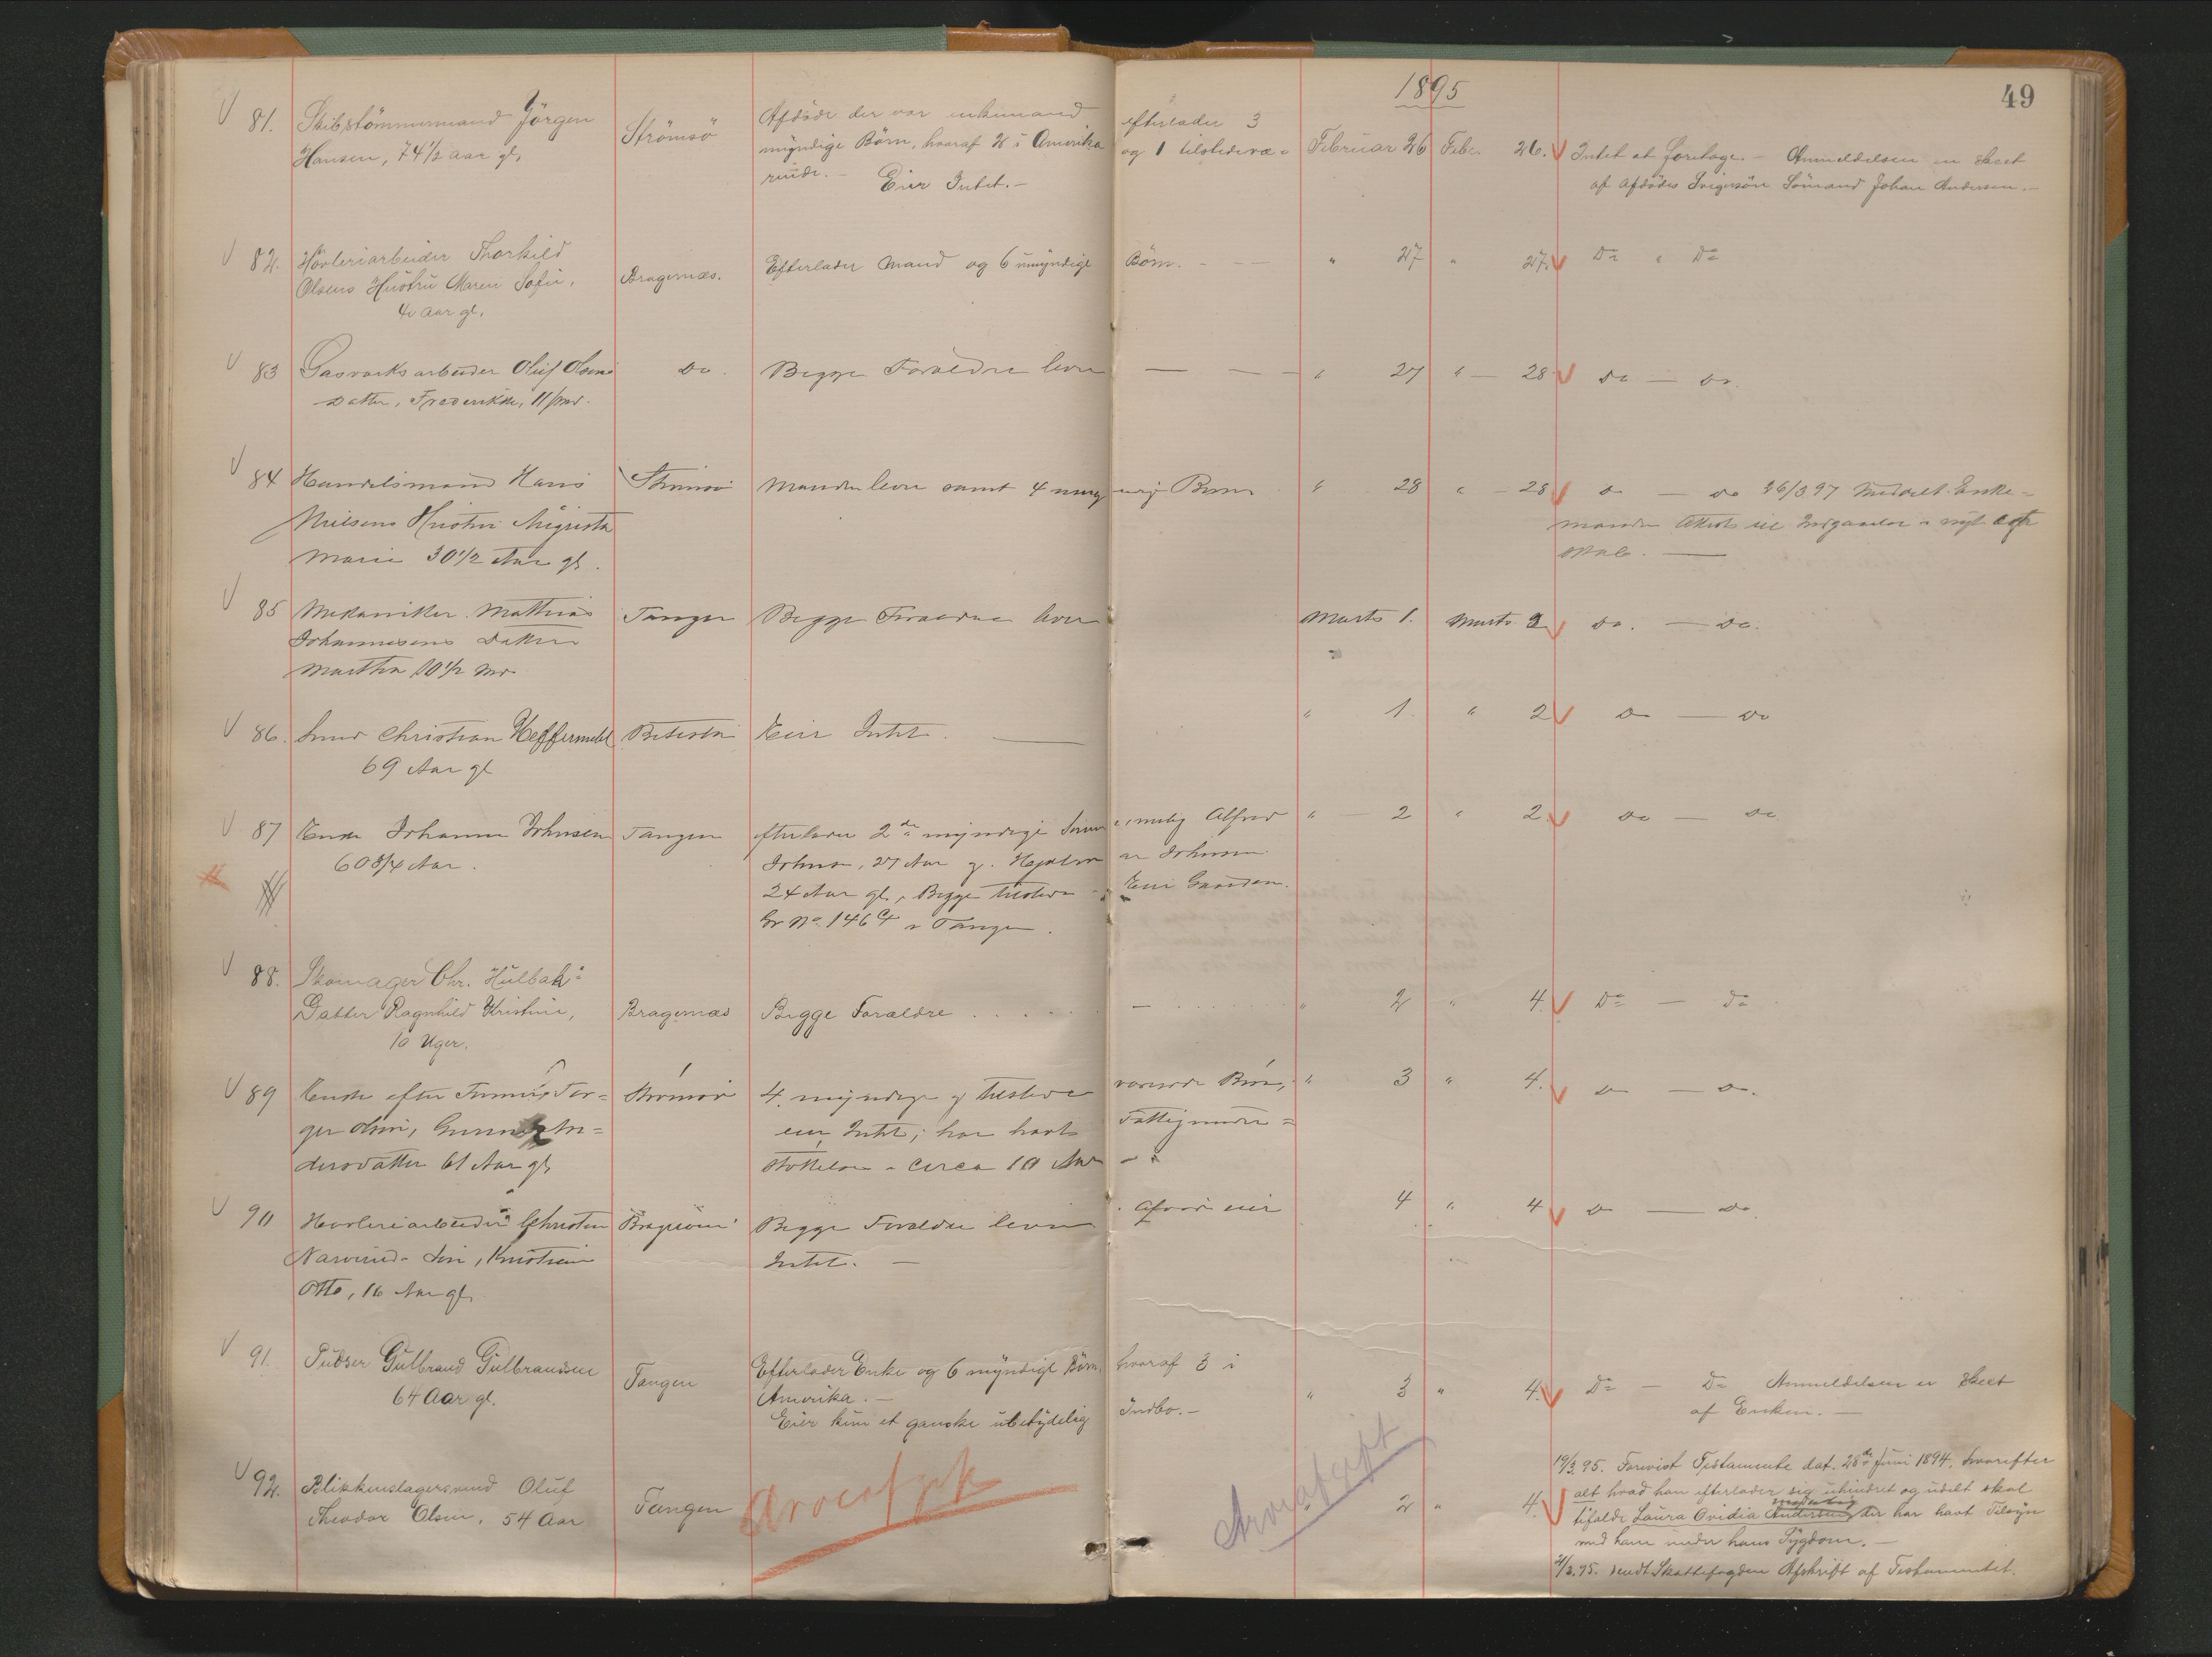 1895
49
81. Skibstömmermand Jörgen Strömsö Afdöde der var enkemand efterlader 3
Hansen, 74 1/2 aar gl, myndige Börn, hvoraf 2 i Amerika og 1 tilstedevæ= Februar 26 Feb. 26. Intet at foretage. - Anmeldelsen er skeet
rende. - Eier Intet. - af afdödes Svigersön Sömand Johan Andersen. -
82. Hövleriarbeider Thorkild
Olsens Hustru Maren Sofie, Bragernæs. Efterlader Mand og 6 umyndige Börn. - " 27 " 27. Do " Do
41 aar gl.
83 Gasværksarbeider Oluf Olsens do. Begge Forældre lever " 27 " - 28 do - do.
Datter, Frederikke, 11 mdr.
84 Handelsmand Hans Strömsö Manden lever samt 4 umyndig Börn " 28 " - 28 do - do 26/3 97 meddelt Enke=
Nielsens Hustru Augusta manden Attest til Indgaaelse i nyt Ægte
Marie 30 1/2 Aar gl. skab. -
85 Mekaniker Mathias Tangen Begge Forældre lever Marts 1. Marts 2 do. - do.
Johannesens Datter
Martha 10 1/2 Mdr
86. Smed Christian Heffermehl Betesta Eier Intet. " 1. " 2 do - do
69 Aar gl
87 Enke Johanne Johnsen Tangen efterlader 2 de myndige Sönner, nemlig Alfred " - 2 " 2. do - do
60 3/4 Aar. Johnsen, 27 Aar g. Hjalmar Johnsen
24 Aar gl, Begge tilstede - Eier Gaarden
Gr No. 146 i Tangen.
88. Skomager Chr. Hulbak's
Datter Ragnhild Kristine, Bragernæs Begge Forældre . . . . - . . . . " 2 " 4. Do - do
10 Uger.
89 Enke efter Tor= Strömsö 4 myndige g tilstedeværende Börn, " 3 " 4. do - do.
ger Olsen, Gunnhild An= eier Intet; har havt Fattigunder=
dersdatter 61 Aar gl, stöttelse i circa 10 Aar -
90 Hövleriarbeider Christen Bragernæs Begge Forældre lever. Afdöde eier 4 " 4 do - do.
Narverud's Sön, Kristian Intet. -
Otto, 16 Aar gl,
91. Pudser Gulbrand Gulbrandsen Tangen Efterlader Enke og 6 myndige Börn, hvoraf 3 i
64 Aar gl. Amerika. - " 3 " 4. Do - Do Anmeldelsen er skeet
Eier kun et ganske ubetydelig Indbo. - af Enken. -
92. Blikkenslagersvend Oluf Tangen Arveafgift Arveafgift 2 " 4.
Theodor Olsen, 54 Aar
19/3.95. Forevist Testamente dat. 28de Juni 1894, hvorefter
alt hvad han efterlader sig uhindret og udelt skal
tilfalde Laura Ovidia Andersen der har havt Tilsyn
med ham under hans Sygdom. -
21/3.95. sendt Skattefogden Afskrift af Testamentet.